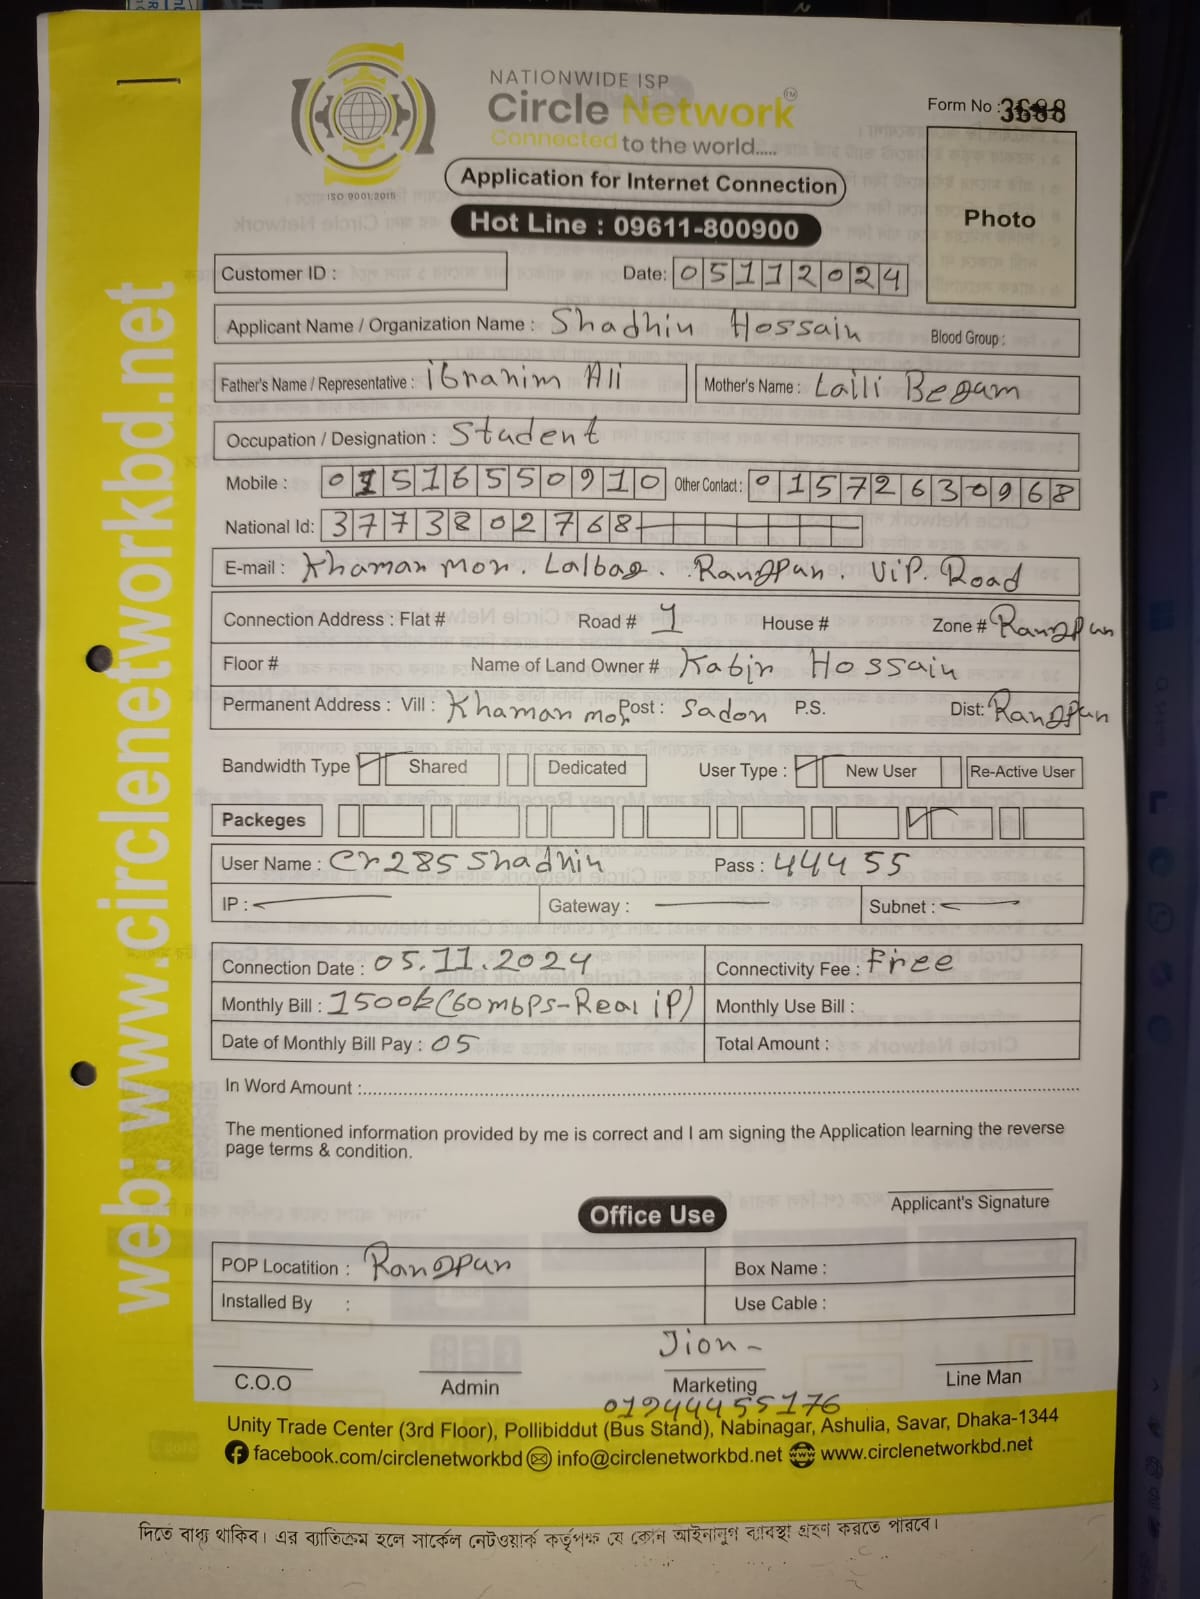 NATIONWIDE ISP
Circle Network TM
Connected to the world.....
ISO 9001:2015
Form No : 3688
Application for Internet Connection
Hot Line : 09611-800900
Photo
Customer ID :
Date: 05112024
Applicant Name / Organization Name : Shadhin Hossain Blood Group :
Father's Name / Representative : ibrahim Ali Mother's Name : Laili Begum
Occupation / Designation : Student
Mobile : 01516550910 Other Contact : 01572630968
National Id: 3773802768
E-mail : Khamar mor. Lalbag. Rangpur. ViP. Road
Connection Address : Flat # Road # 1 House # Zone # Rangpur
Floor # Name of Land Owner # Kabir Hossain
Permanent Address : Vill : Khamar mor Post : Sador P.S. Dist: Rangpur
Bandwidth Type Shared Dedicated User Type : New User Re-Active User
Packeges
User Name : Cr285Shadhin Pass : 44455
IP : Gateway : Subnet :
Connection Date : 05.11.2024 Connectivity Fee : Free
Monthly Bill : 1500k (60mbps-Real iP) Monthly Use Bill :
Date of Monthly Bill Pay : 05 Total Amount :
In Word Amount :
The mentioned information provided by me is correct and I am signing the Application learning the reverse
page terms & condition.
Applicant's Signature
Office Use
POP Locatition : Rangpur Box Name :
Installed By : Use Cable :
Jion
C.O.O Admin Marketing Line Man
01944455176
Unity Trade Center (3rd Floor), Pollibiddut (Bus Stand), Nabinagar, Ashulia, Savar, Dhaka-1344
facebook.com/circlenetworkbd info@circlenetworkbd.net www.circlenetworkbd.net
web: www.circlenetworkbd.net
দিতে বাধ্য থাকিব। এর ব্যতিক্রম হলে সার্কেল নেটওয়ার্ক কর্তৃপক্ষ যে কোন আইনানুগ ব্যবস্থা গ্রহণ করতে পারবে।